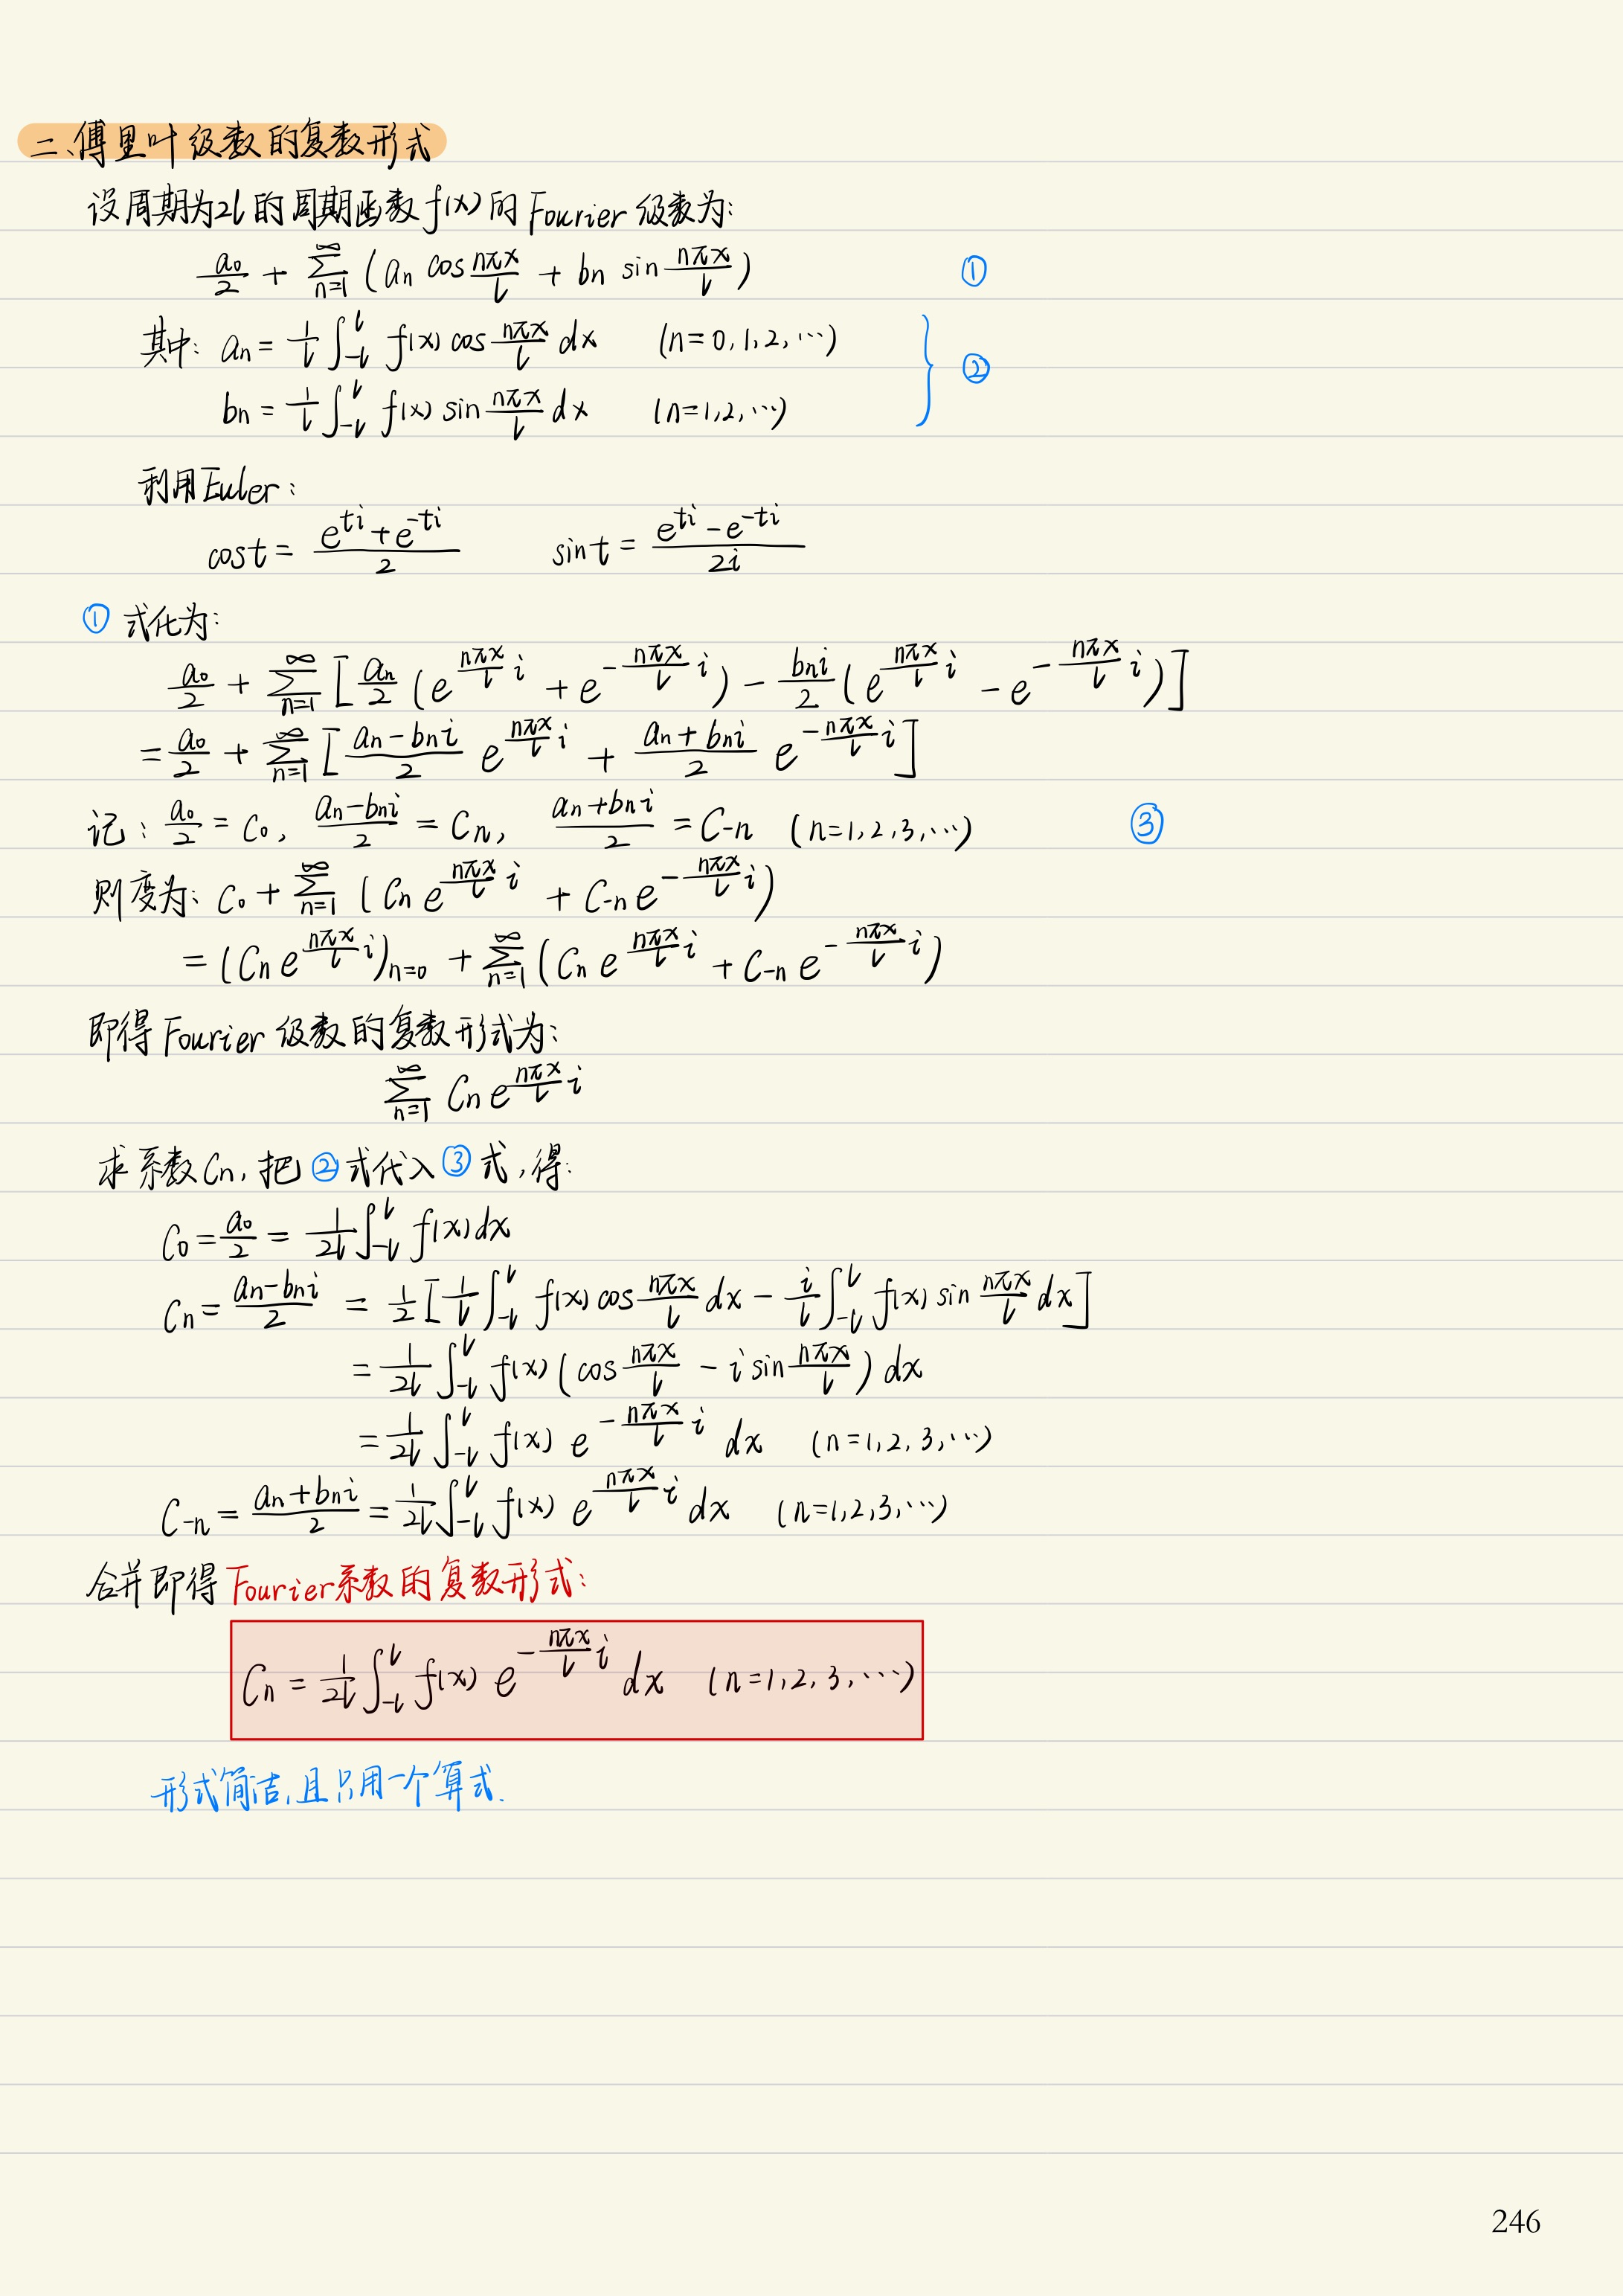 二、傅里叶级数的复数形式
设周期为2l的周期函数f(x)的Fourier级数为:
a₀/2 + ∑_{n=1}^{∞} (aₙ cos nπx/l + bₙ sin nπx/l) ①
其中: aₙ = 1/l ∫_{-l}^{l} f(x) cos nπx/l dx (n=0,1,2,⋯)
bₙ = 1/l ∫_{-l}^{l} f(x) sin nπx/l dx (n=1,2,⋯) ②
利用Euler:
cos t = (e^{ti} + e^{-ti})/2 sin t = (e^{ti} - e^{-ti})/2i
① 式化为:
a₀/2 + ∑_{n=1}^{∞} [aₙ/2 (e^{nπx/l i} + e^{-nπx/l i}) - bₙi/2 (e^{nπx/l i} - e^{-nπx/l i})]
= a₀/2 + ∑_{n=1}^{∞} [(aₙ - bₙi)/2 e^{nπx/l i} + (aₙ + bₙi)/2 e^{-nπx/l i}]
记: a₀/2 = C₀, (aₙ - bₙi)/2 = Cₙ, (aₙ + bₙi)/2 = C₋ₙ (n=1,2,3,⋯) ③
则度为: C₀ + ∑_{n=1}^{∞} (Cₙ e^{nπx/l i} + C₋ₙ e^{-nπx/l i})
= (Cₙ e^{nπx/l i})_{n=0} + ∑_{n=1}^{∞} (Cₙ e^{nπx/l i} + C₋ₙ e^{-nπx/l i})
即得Fourier级数的复数形式为:
∑_{n=1}^{∞} Cₙ e^{nπx/l i}
求系数Cₙ, 把②式代入③式,得:
C₀ = a₀/2 = 1/2l ∫_{-l}^{l} f(x)dx
Cₙ = (aₙ - bₙi)/2 = 1/2 [1/l ∫_{-l}^{l} f(x) cos nπx/l dx - i/l ∫_{-l}^{l} f(x) sin nπx/l dx]
= 1/2l ∫_{-l}^{l} f(x) (cos nπx/l - i sin nπx/l) dx
= 1/2l ∫_{-l}^{l} f(x) e^{-nπx/l i} dx (n=1,2,3,⋯)
C₋ₙ = (aₙ + bₙi)/2 = 1/2l ∫_{-l}^{l} f(x) e^{nπx/l i} dx (n=1,2,3,⋯)
合并即得Fourier系数的复数形式:
Cₙ = 1/2l ∫_{-l}^{l} f(x) e^{-nπx/l i} dx (n=1,2,3,⋯)
形式简洁,且只用一个算式.
246